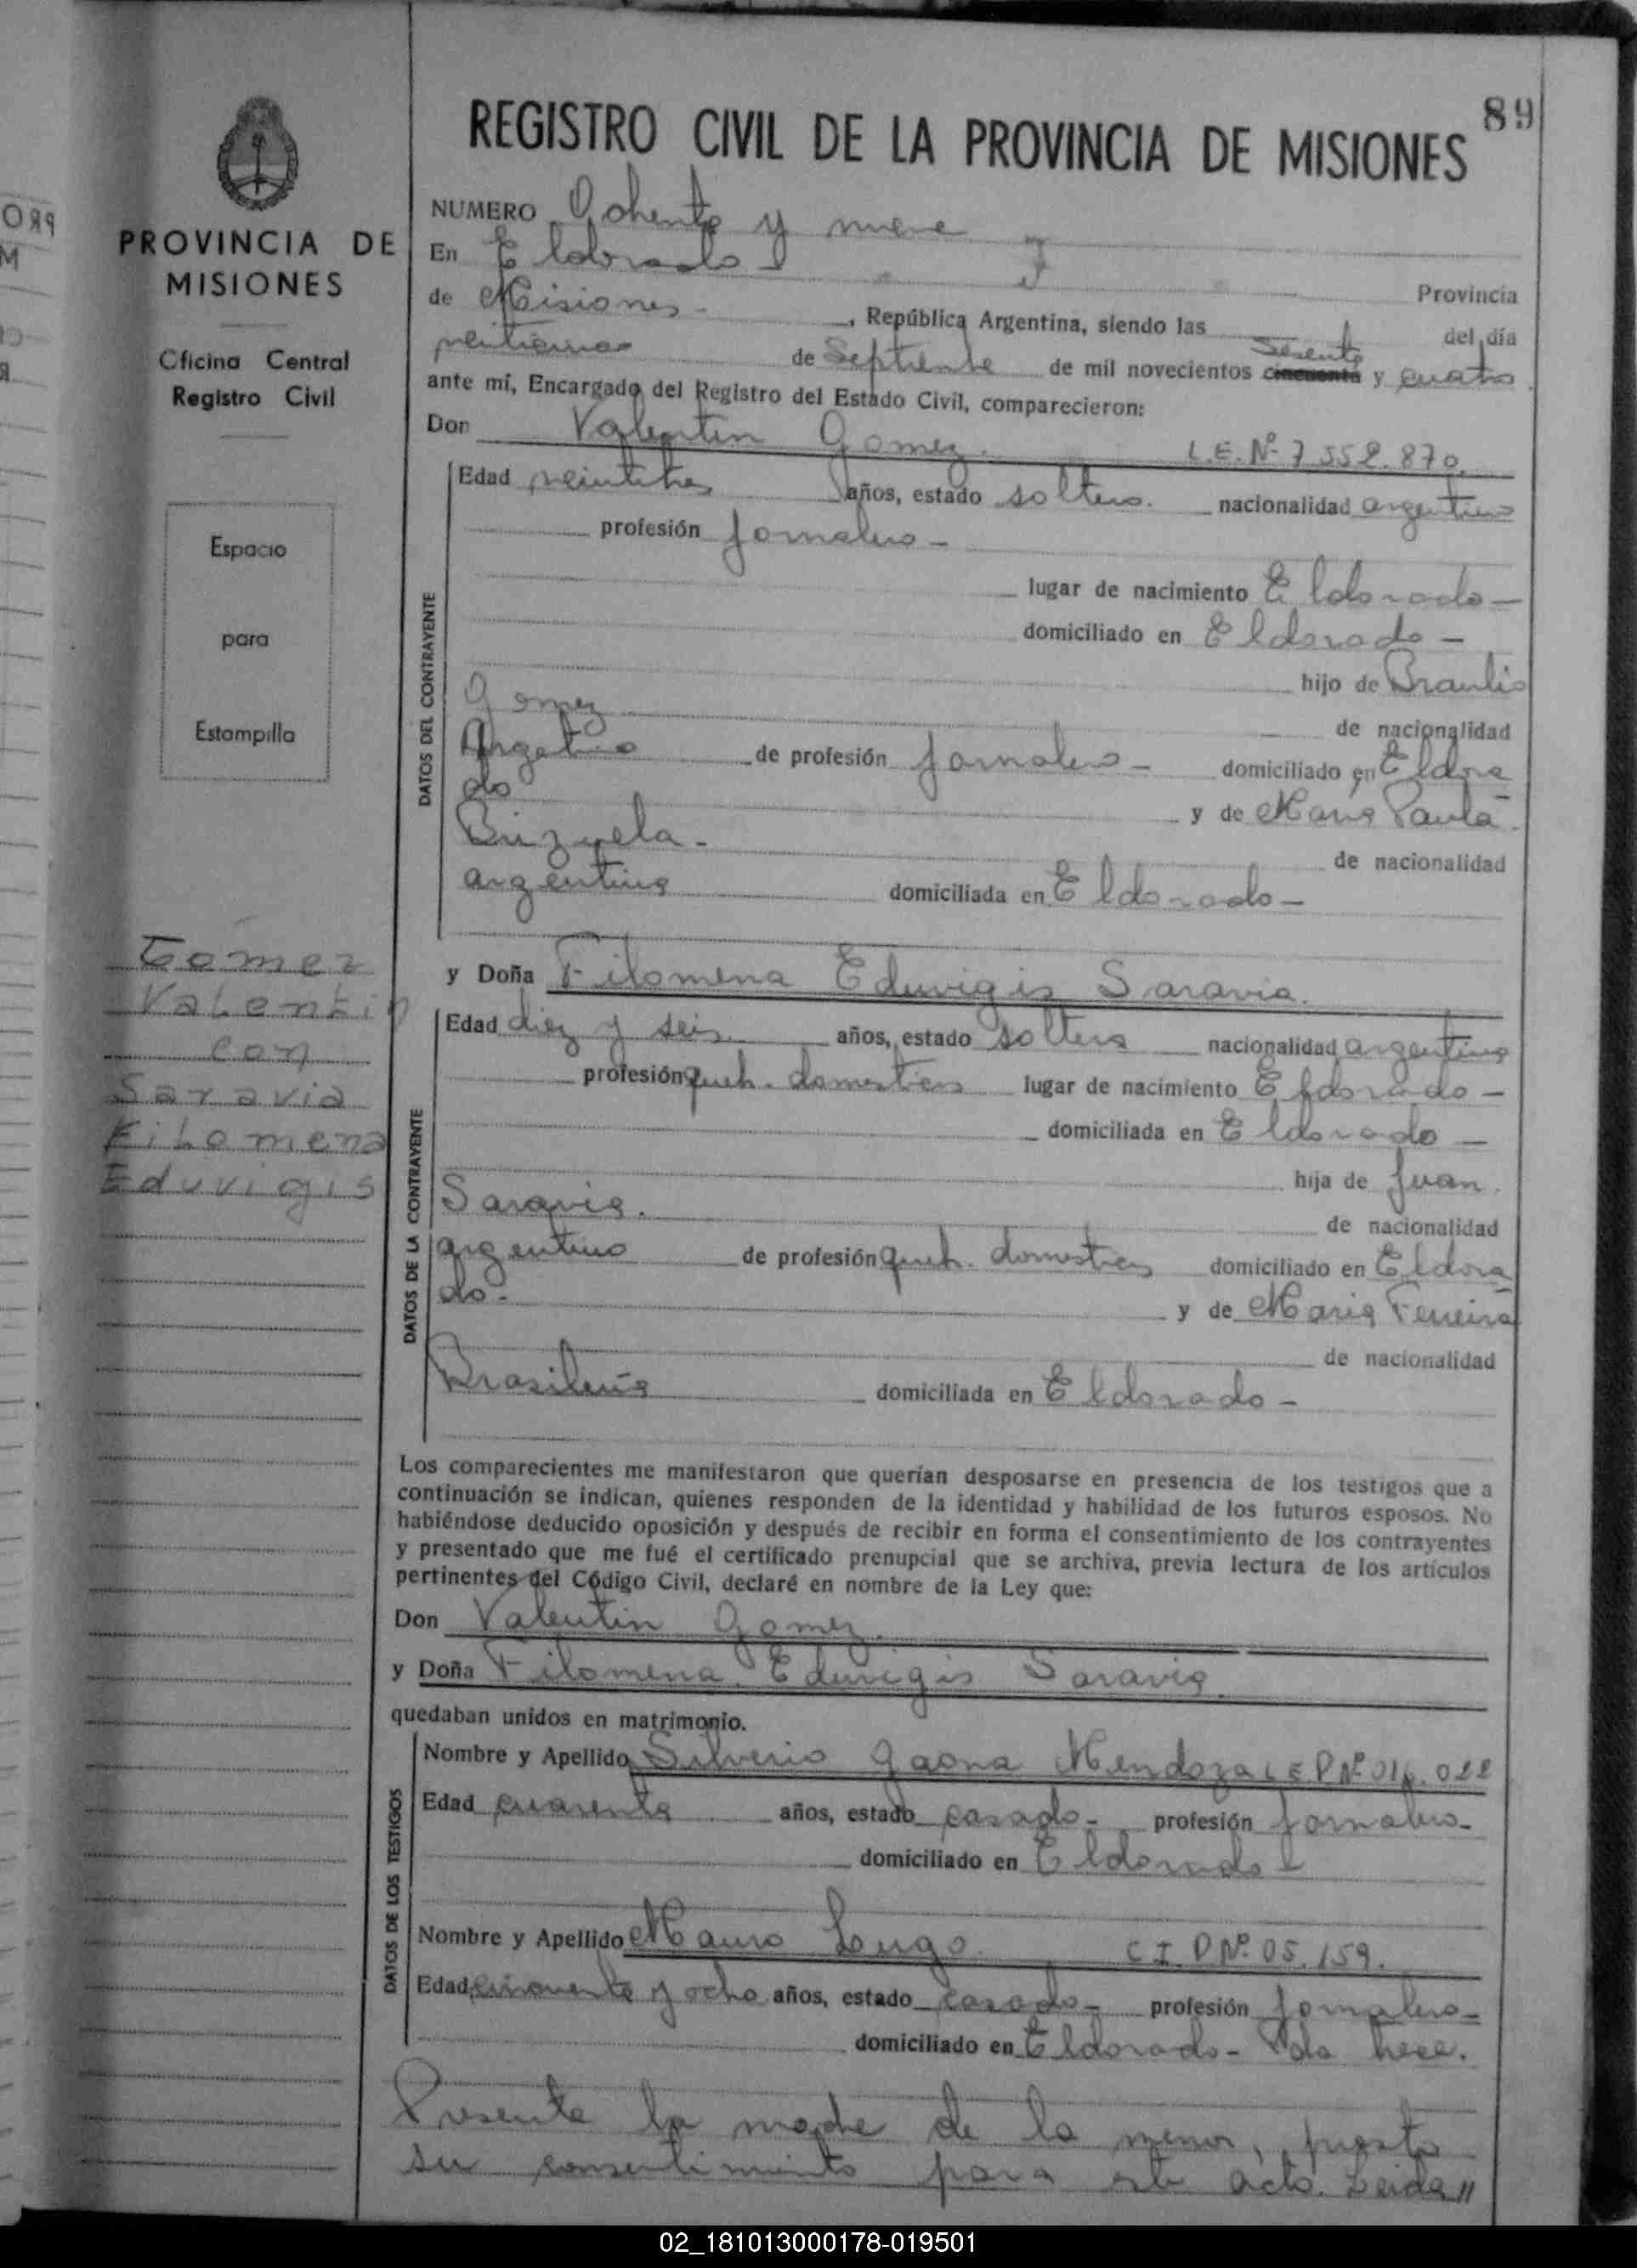 89
REGISTRO CIVIL DE LA PROVINCIA DE MISIONES
PROVINCIA DE
MISIONES
Oficina Central
Registro Civil
Espacio
para
Estampilla
Gómez
Valentin
con
Saravia
Filomena
Eduvigis
NUMERO Ochenta y nueve
En Eldorado
Provincia
de Misiones - , República Argentina, siendo las del día
sesenta
de Septiembre de mil novecientos cincuenta y cuatro
ante mí, Encargado del Registro del Estado Civil, comparecieron:
Don Valentin Gomez. L.E. Nº 7 552.870.
Edad veintitres años, estado soltero. nacionalidad argentino
profesión Jornalero -
lugar de nacimiento Eldorado -
domiciliado en Eldorado -
hijo de Braulio
Gomez de nacionalidad
Argetino de profesión Jornalero - domiciliado en Eldora
do y de Maria Paula
Brizuela - de nacionalidad
argentina domiciliada en Eldorado -
DATOS DEL CONTRAYENTE
y Doña Filomena Eduvigis Saravia.
Edad diez y seis años, estado soltera nacionalidad argentina
profesión queh. domesticos lugar de nacimiento Eldorado -
domiciliada en Eldorado -
hija de Juan
Saravia. de nacionalidad
argentino de profesión queh. domesticos domiciliado en Eldora
do - y de Maria Ferreira
de nacionalidad
Brasileña domiciliada en Eldorado -
DATOS DE LA CONTRAYENTE
Los comparecientes me manifestaron que querían desposarse en presencia de los testigos que a
continuación se indican, quienes responden de la identidad y habilidad de los futuros esposos. No
habiéndose deducido oposición y después de recibir en forma el consentimiento de los contrayentes
y presentado que me fué el certificado prenupcial que se archiva, previa lectura de los artículos
pertinentes del Código Civil, declaré en nombre de la Ley que:
Don Valentin Gomez.
y Doña Filomena Eduvigis Saravia.
quedaban unidos en matrimonio.
Nombre y Apellido Silverio Gaona Mendoza
Edad cuarenta años, estado casado - profesión Jornalero -
domiciliado en Eldorado
Nombre y Apellido Mauro Lugo. C I. P Nº 05.159.
Edad cincuenta y ocho años, estado casado - profesión Jornalero -
domiciliado en Eldorado -
DATOS DE LOS TESTIGOS
Presente la madre de la menor, presta
su consentimiento para este acto. Leida //
02_181013000178-019501